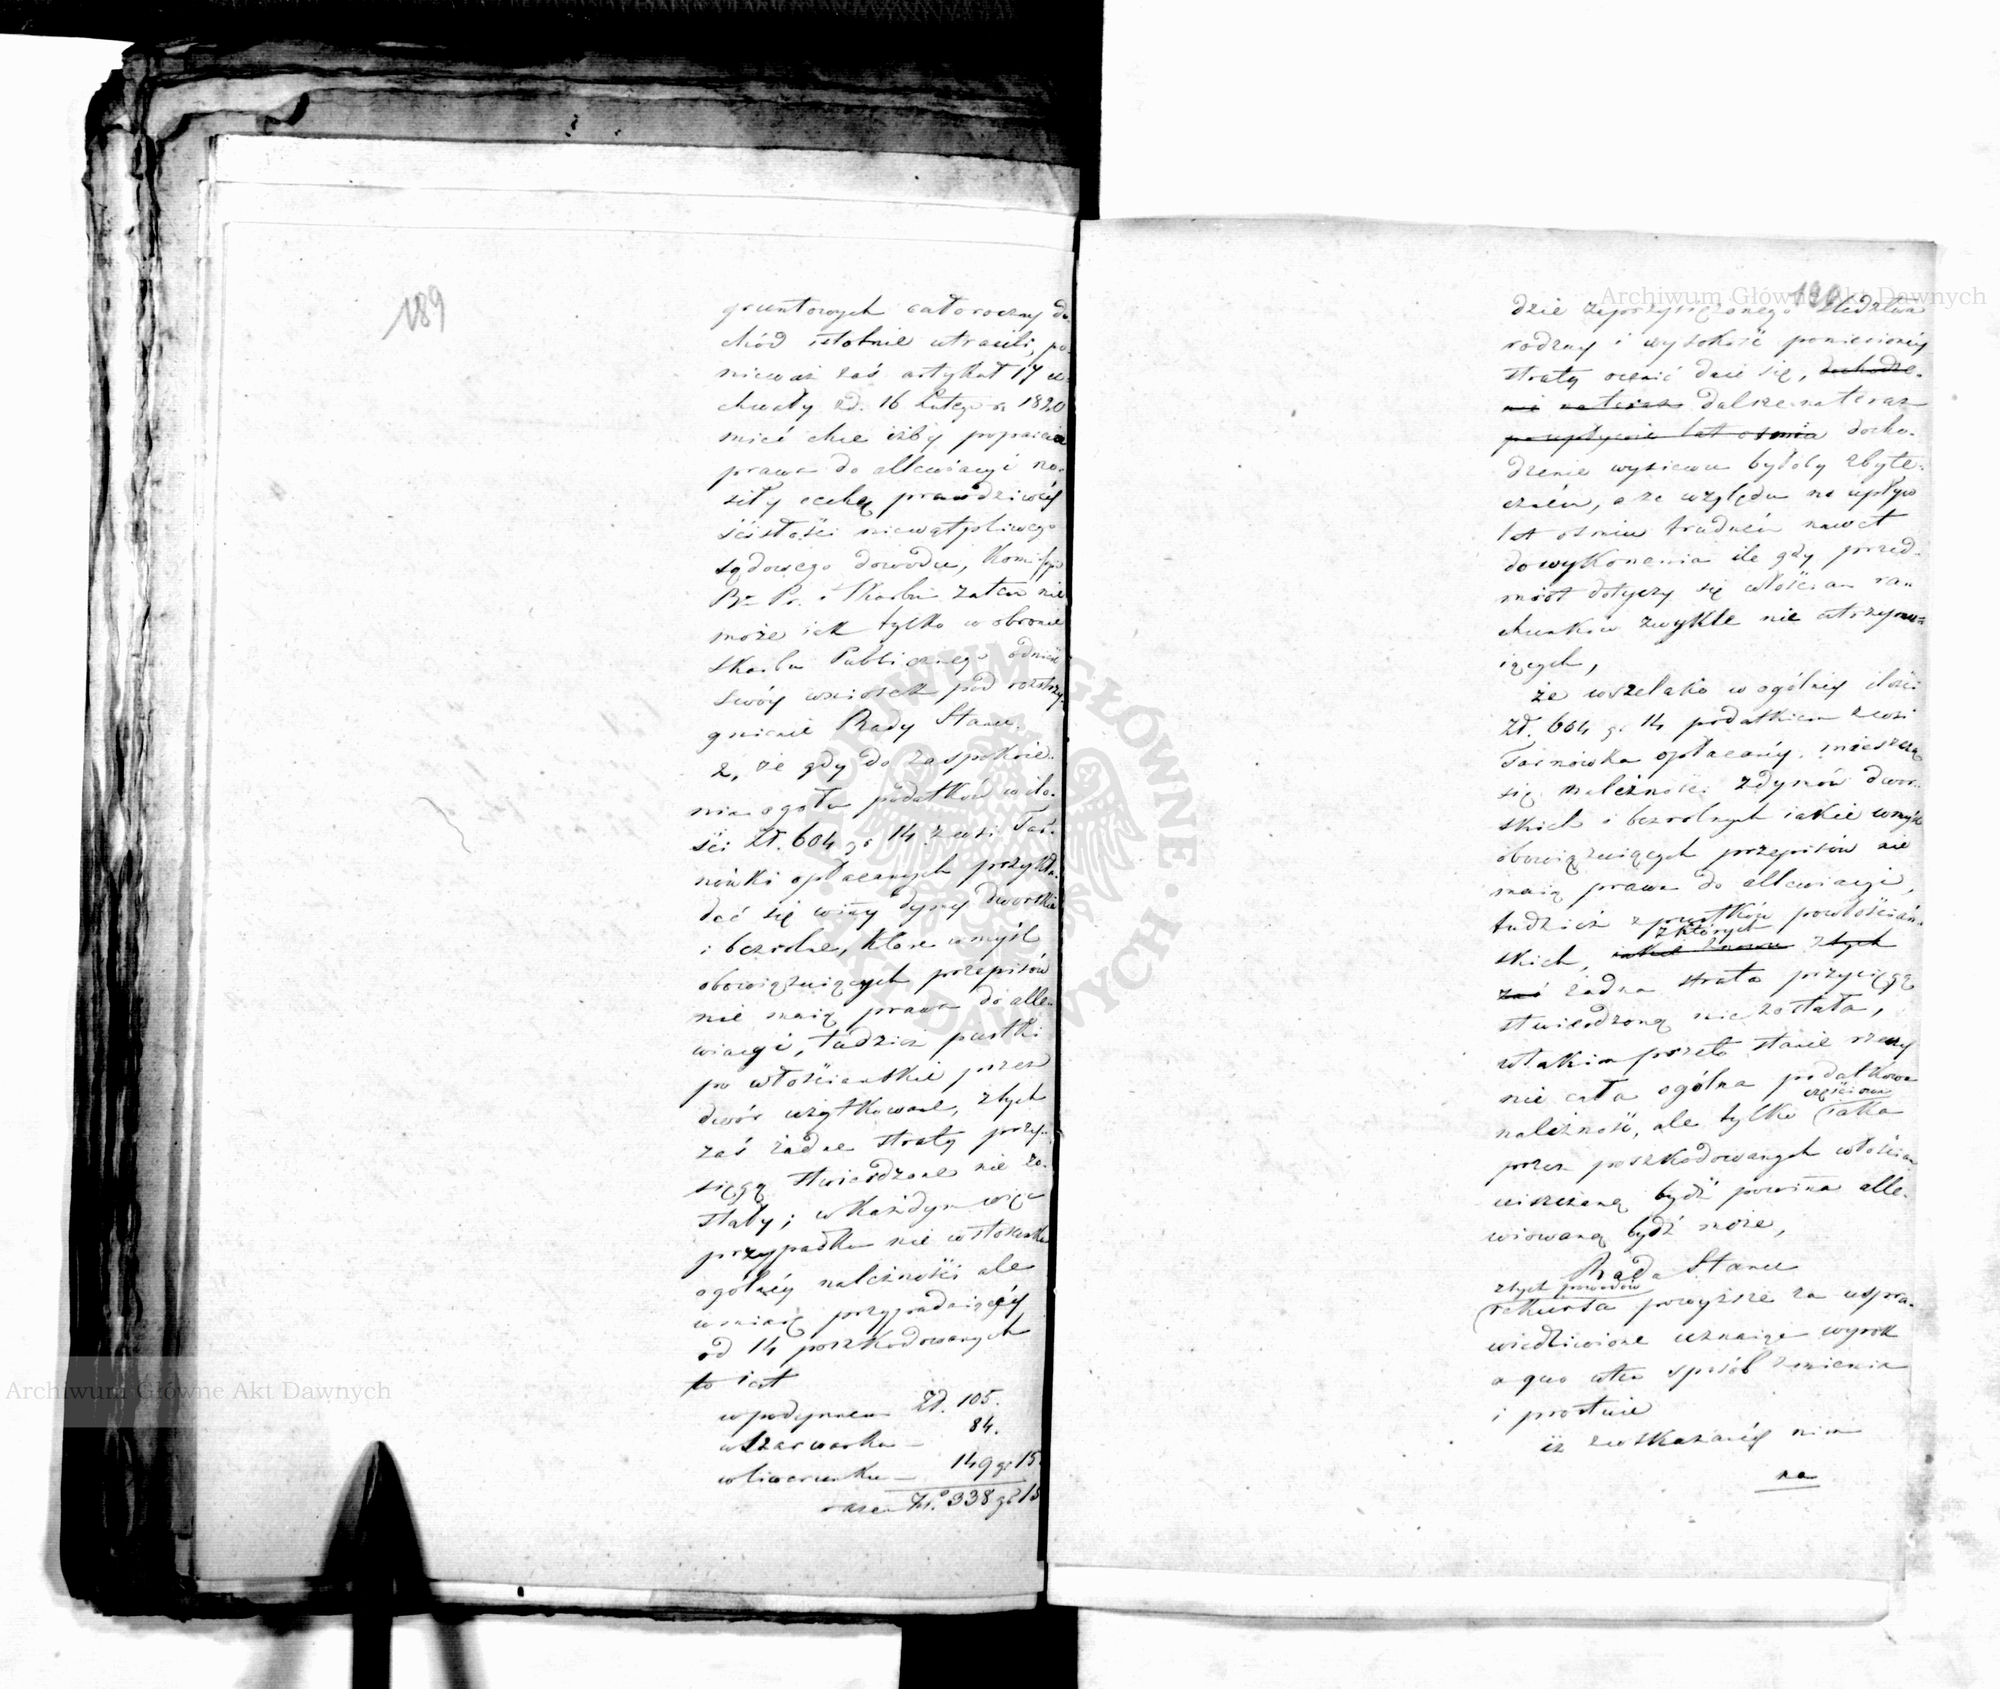 189
gruntowych całoroczny do-
chód istotnie utracili, po-
nieważ zaś artykuł 17 u-
chwały zd. 16 Lutego r. 1820
mieć chce iżby poparcia
prawa do allewiacyi no-
siły cechę prawdziwéy
ścisłości niewątpliwego
sądowego dowodu, Kommissya
Rz. Pr. i Skarbu zatem nie
może iak tylko w obronie
Skarbu Publicznego odnieść
swóy wniosek pod rozstrzy-
gnienie Rady Stanu.
2, że gdy do zaspokoie-
nia ogółu podatków w ilo-
ści Zł. 604 gr 14 z wsi Taś-
nówki opłacanych przykła-
dać się winny dymy dworskie
i bezrolne, które w myśl
obowiązuiących przepisów
nie maią prawa do alle-
wiacyi, tudzież pustki
po włościańskie przez
dwór użytkowane, z tych
zaś żadne straty przy-
sięgą stwierdzone nie zo-
stały; w każdym więc
przypadku nie w stosunku
ogólnéy należności ale
w miarę przypadaiącéy
od 14 poszkodowanych
to iest
w podymnem Zł. 105.
w szarwarku — 84.
w liwerunku — 149 gr 15
razem Zł. 338 gr 15
190
dzie zaprzysiężonego śledztwa
rodzay i wysokość poniesionéy
straty ocenić daie się, dochodze-
nie nateraz dalsze nateraz
po upłynie lat ośmiu docho-
dzenie wysiewu byłoby zbyte-
czném, a ze względu na upływ
lat ośmiu trudném nawet
do wykonania ile gdy przed-
miot dotyczy się włościan ra-
chunków zwykle nie utrzymu-
iących,
że wszelako w ogólnéy ilości
Zł. 604 gr 14 podatkiem z wsi
Taśnówka opłacanéy, mieszczą
się należności z dymów dwor-
skich i bezrolnych iakie w myśl
obowiązuiących przepisów nie
maią prawa do allewiacyi,
tudzież z pustków powłościań-
z których
skich, z tych
zaś żadna strata przysięgą
stwierdzoną nie została,
w takim przeto stanie rzeczy
nie cała ogólna podatkowa
częściowa
należność, ale tylko iaka
przez poszkodowanych włościan
uiszczaną bydź powinna alle-
wiowaną bydź może,
Rada Stanu
z tych powodów
rekursa powyższe za uspra-
wiedliwione uznaiąc wyrok
a quo w ten sposób zmienia
i prostuie
iż z wskazanéy nim
na
Archiwum Główne Akt Dawnych
Archiwum Główne Akt Dawnych
ARCHIWUM GŁÓWNE AKT DAWNYCH